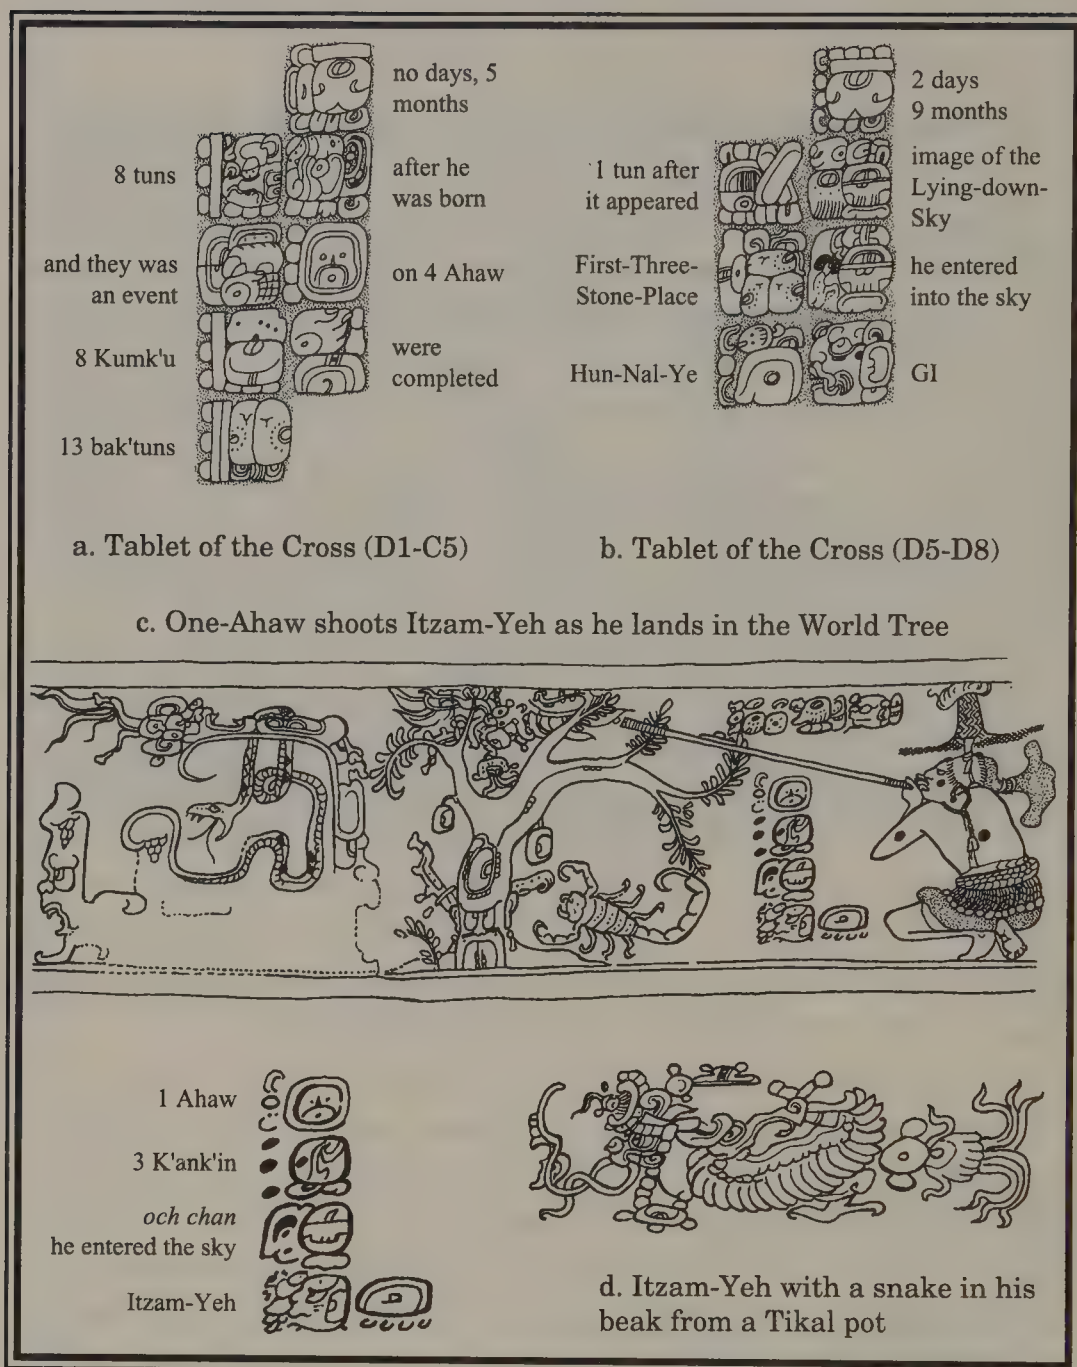 no days, 5
months
8 tuns
after he
was born
and they was
an event
on 4 Ahaw
8 Kumk'u
were
completed
13 bak'tuns
a. Tablet of the Cross (D1-C5)
2 days
9 months
1 tun after
it appeared
image of the
Lying-down-
Sky
First-Three-
Stone-Place
he entered
into the sky
Hun-Nal-Ye
GI
b. Tablet of the Cross (D5-D8)
c. One-Ahaw shoots Itzam-Yeh as he lands in the World Tree
1 Ahaw
3 K'ank'in
och chan
he entered the sky
Itzam-Yeh
d. Itzam-Yeh with a snake in his
beak from a Tikal pot